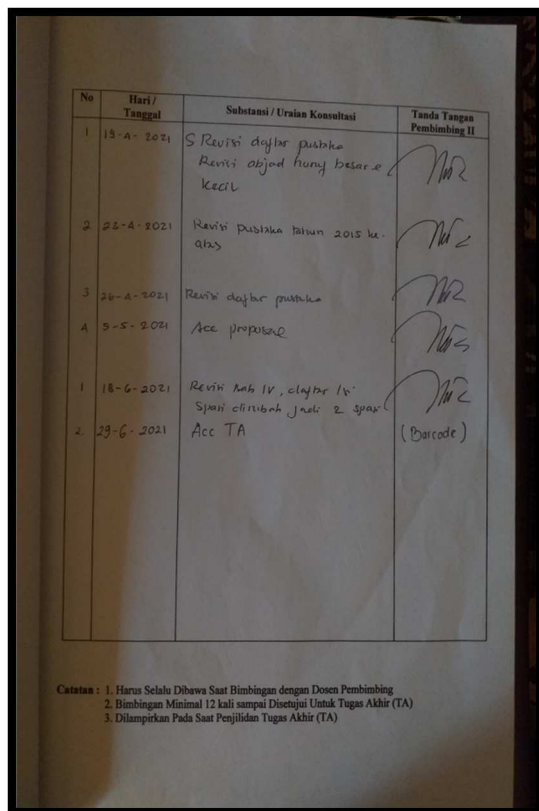 No Hari / Tanggal Substansi / Uraian Konsultasi Tanda Tangan Pembimbing II
1 19-4-2021 S Revisi daftar pustaka
Revisi abjad huruf besar &
kecil
2 23-4-2021 Revisi pustaka tahun 2015 ke-
atas
3 26-4-2021 Revisi daftar pustaka
4 5-5-2021 Acc proposal
1 18-6-2021 Revisi bab IV, daftar isi
Spasi dirubah jadi 2 spasi
2. 29-6-2021 Acc TA (Barcode)
Catatan : 1. Harus Selalu Dibawa Saat Bimbingan dengan Dosen Pembimbing
2. Bimbingan Minimal 12 kali sampai Disetujui Untuk Tugas Akhir (TA)
3. Dilampirkan Pada Saat Penjilidan Tugas Akhir (TA)